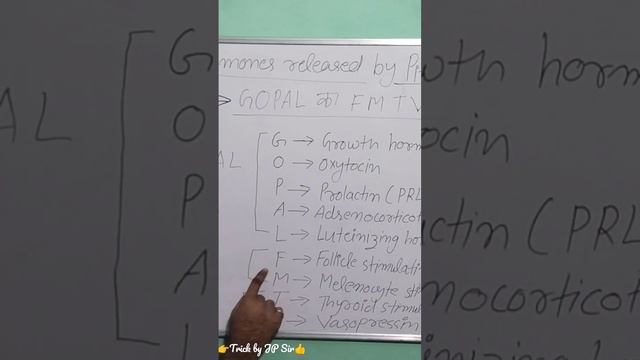 mones released by Pi
→ GOPAL का FM TV
G → Growth horm
O → Oxytocin
P → Prolactin (PRL
A → Adrenocorticot
L → Luteinizing ho
F → Follicle stimulati
M → Melenocyte sti
T → Thyroid stimul
→ Vasopressin
👉Trick by JP Sir👍